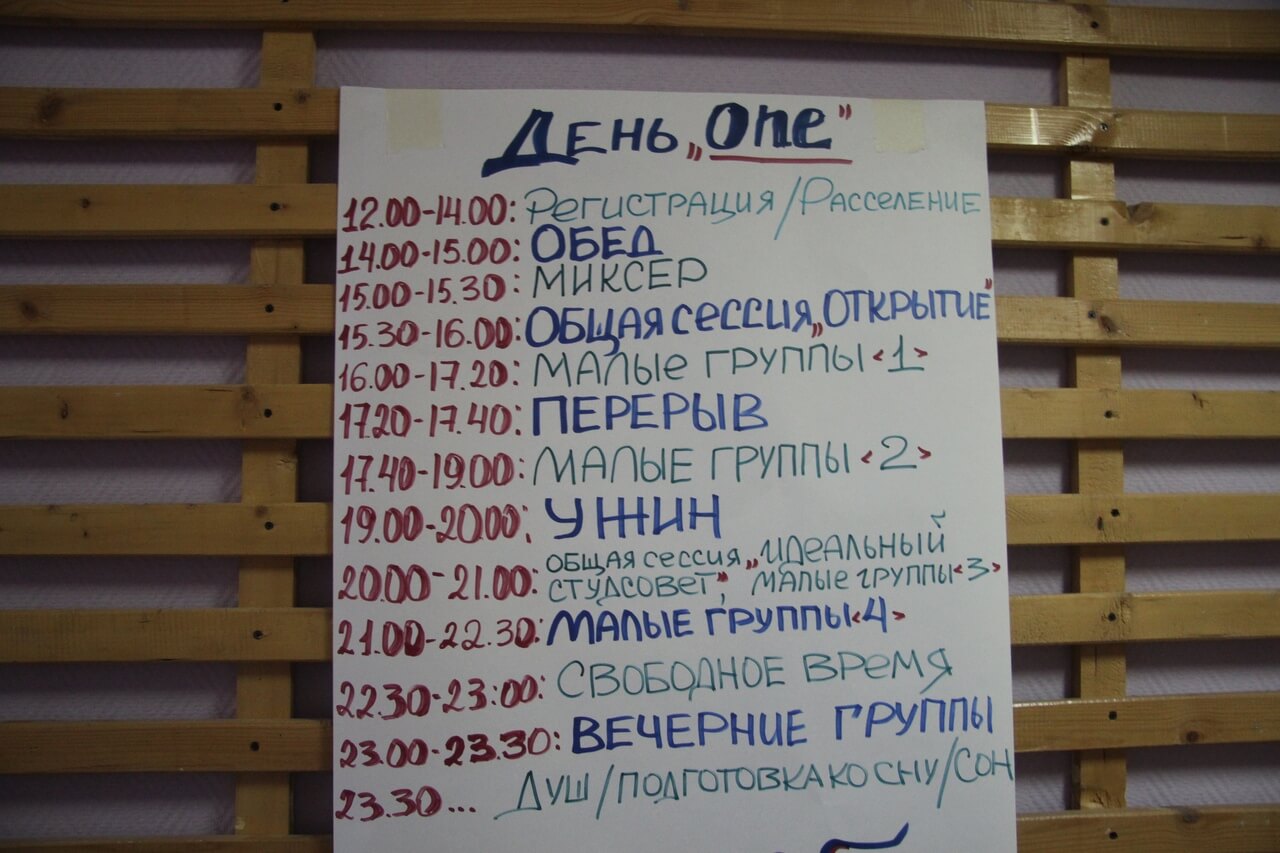 День „One"
12.00-14.00: Регистрация/Расселение
14.00-15.00: ОБЕД
15.00-15.30: МИКСЕР
15.30-16.00: ОБЩАЯ СЕССИЯ „ОТКРЫТИЕ"
16.00-17.20: МАЛЫЕ ГРУППЫ <1>
17.20-17.40: ПЕРЕРЫВ
17.40-19.00: МАЛЫЕ ГРУППЫ <2>
19.00-20.00: УЖИН
20.00-21.00: ОБЩАЯ СЕССИЯ „ИДЕАЛЬНЫЙ
СТУДСОВЕТ", МАЛЫЕ ГРУППЫ <3>
21.00-22.30: МАЛЫЕ ГРУППЫ <4>
22.30-23:00: СВОБОДНОЕ ВРЕМЯ
23.00-23.30: ВЕЧЕРНИЕ ГРУППЫ
23.30... ДУШ/ПОДГОТОВКА КО СНУ/СОН